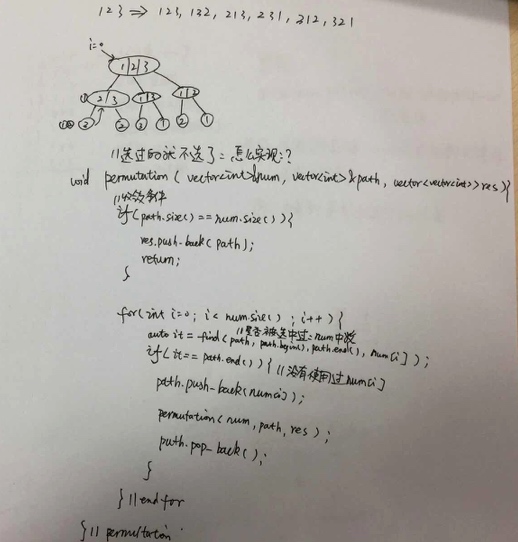 123 ⇒ 123, 132, 213, 231, 312, 321
i=0
1|2|3
2|3 1|3 1|2
3 2 1
//选过的就不选了: 怎么实现?
void permutation( vector<int>&num, vector<int>&path, vector<vector<int>>res){
//收敛条件
if(path.size()==num.size()){
res.push-back(path);
return;
}
for(int i=0; i<num.size(); i++){
//是否被选中过: num中数
auto it = find(path, path.begin(), path.end(), num[i]);
if(it==path.end()){ //没有使用过num[i]
path.push-back(num[i]);
permutation(num, path, res);
path.pop_back();
}
}//end for
}// permutation